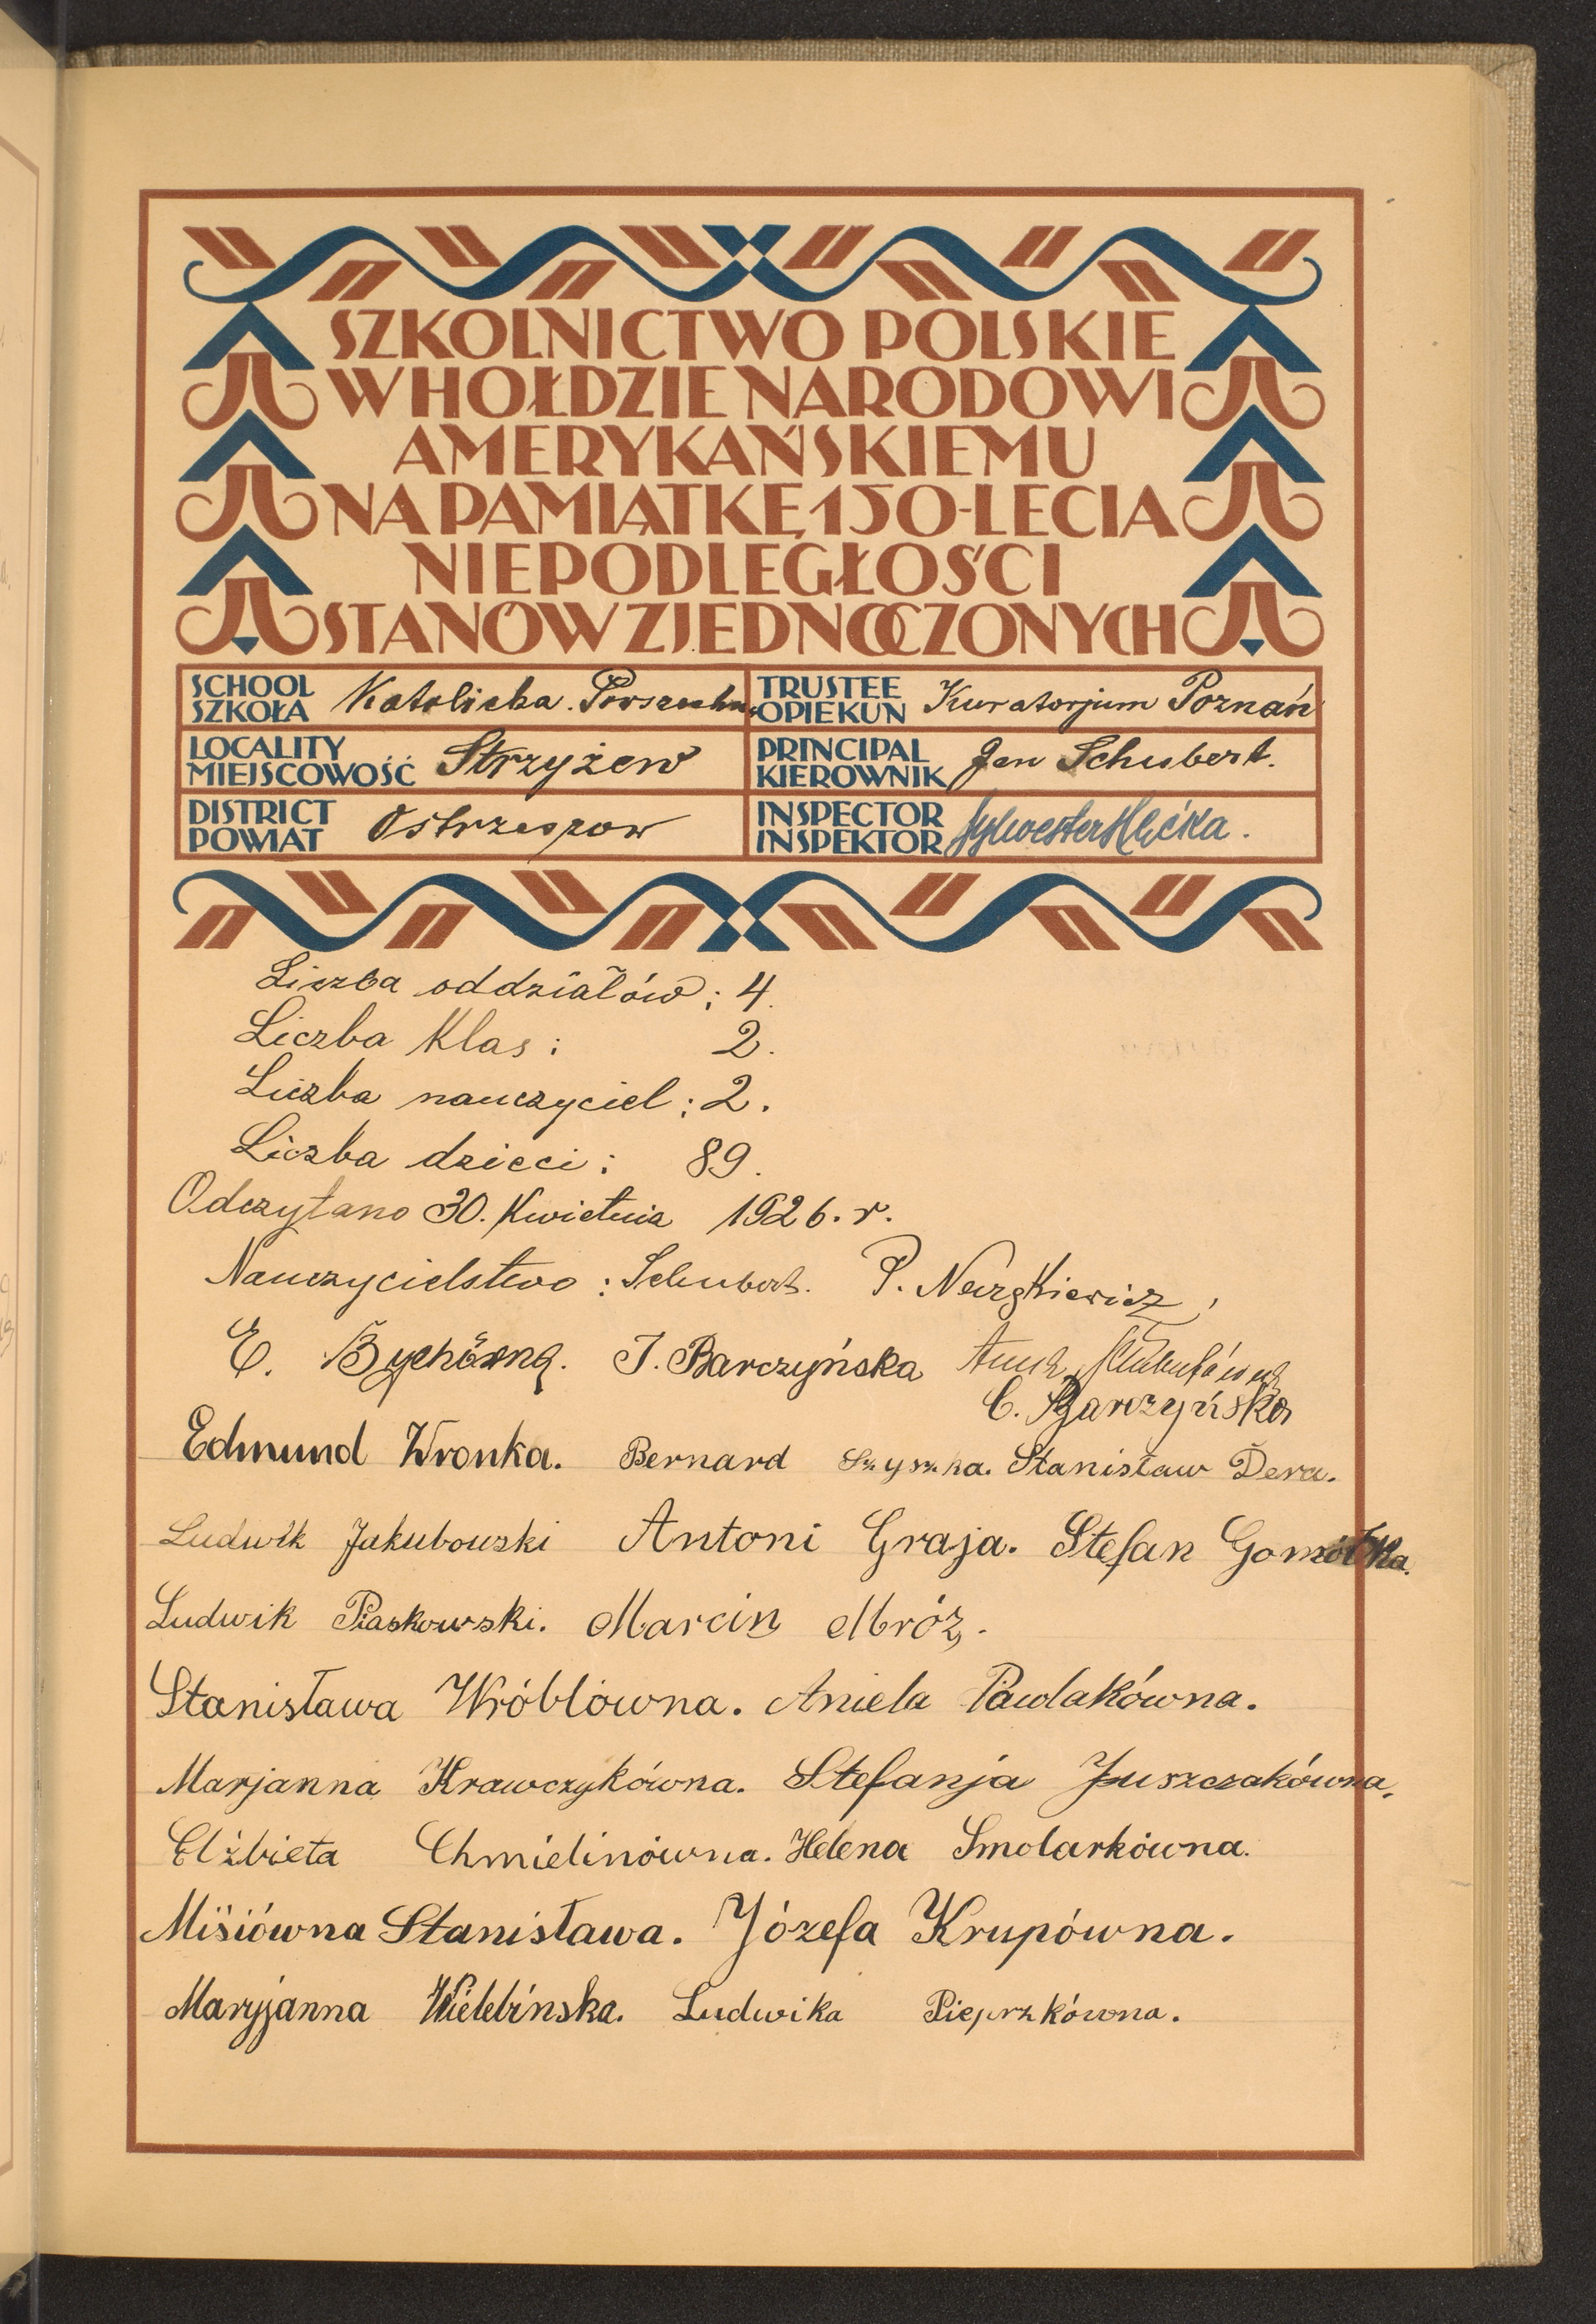 SZKOLNICTWO POLSKIE
W HOŁDZIE NARODOWI
AMERYKAŃSKIEMU
NA PAMIĄTKĘ 150-LECIA
NIEPODLEGŁOŚCI
STANÓW ZJEDNOCZONYCH
SCHOOL
SZKOŁA Katolicka Powszechna
TRUSTEE
OPIEKUN Kuratorjum Poznań
LOCALITY
MIEJSCOWOŚĆ Strzyżew
PRINCIPAL
KIEROWNIK Jan Schubert.
DISTRICT
POWIAT Ostrzeszow
INSPECTOR
INSPEKTOR Sylwester
Liczba oddziałów: 4.
Liczba Klas: 2.
Liczba nauczyciel: 2.
Liczba dzieci: 89.
Odczytano 30. Kwietnia 1926. r.
Nauczycielstwo: Schubert. P.
E. J. Barczyńska Anna
C. Barczyńska
Edmund Wronka. Bernard Szyszka. Stanisław Dera.
Ludwik Jakubowski Antoni Graja. Stefan Gomółka.
Ludwik Piaskowski. Marcin Mróz.
Stanisława Wróblówna. Aniela Pawlakówna.
Marjanna Krawczykówna. Stefanja Juszczakówna.
Elżbieta Chmielinówna. Helena Smolarkówna.
Misiówna Stanisława. Józefa Krupówna.
Maryjanna Wielebińska. Ludwika Pieprzkówna.